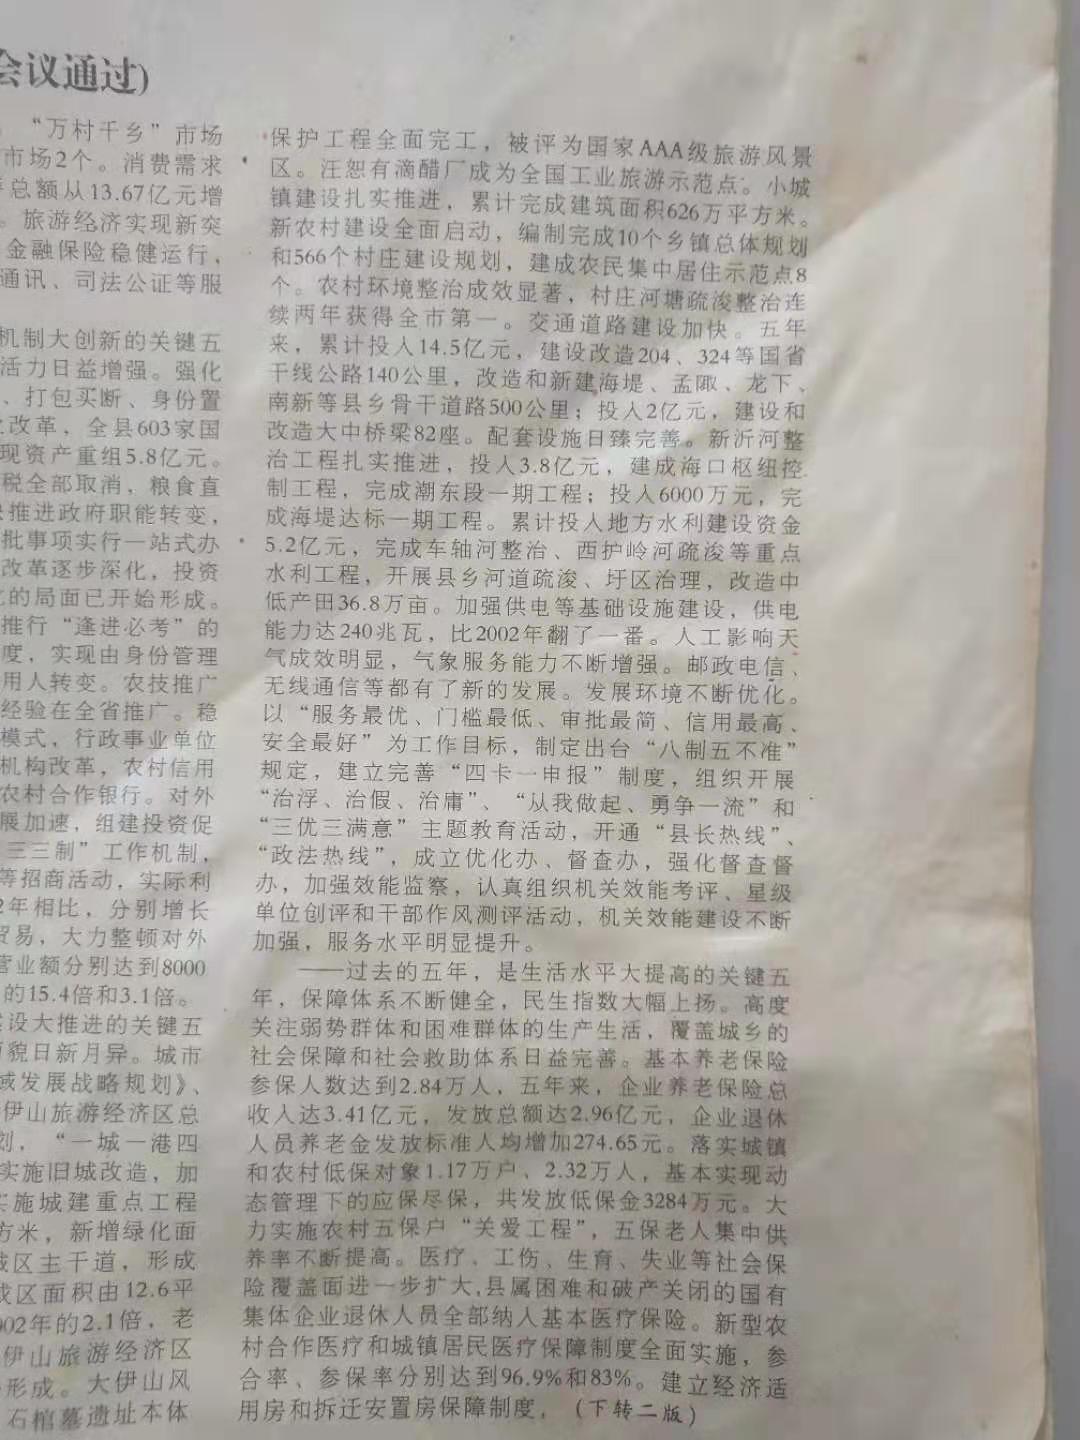 会议通过)
“万村千乡”市场
市场2个。消费需求
总额从13.67亿元增
。旅游经济实现新突
金融保险稳健运行，
通讯、司法公证等服
机制大创新的关键五
活力日益增强。强化
、打包买断、身份置
改革，全县603家国
现资产重组5.8亿元。
税全部取消，粮食直
推进政府职能转变，
批事项实行一站式办
改革逐步深化，投资
的局面已开始形成。
推行“逢进必考”的
度，实现由身份管理
用人转变。农技推广
经验在全省推广。稳
模式，行政事业单位
机构改革，农村信用
农村合作银行。对外
展加速，组建投资促
三三制”工作机制，
等招商活动，实际利
2年相比，分别增长
贸易，大力整顿对外
营业额分别达到8000
的15.4倍和3.1倍。
设大推进的关键五
面貌日新月异。城市
域发展战略规划》、
伊山旅游经济区总
划，“一城一港四
实施旧城改造，加
实施城建重点工程
方米，新增绿化面
城区主干道，形成
成区面积由12.6平
002年的2.1倍，老
伊山旅游经济区
形成。大伊山风
石棺墓遗址本体
保护工程全面完工，被评为国家AAA级旅游风景
区。汪恕有滴醋厂成为全国工业旅游示范点。小城
镇建设扎实推进，累计完成建筑面积626万平方米。
新农村建设全面启动，编制完成10个乡镇总体规划
和566个村庄建设规划，建成农民集中居住示范点8
个。农村环境整治成效显著，村庄河塘疏浚整治连
续两年获得全市第一。交通道路建设加快。五年
来，累计投入14.5亿元，建设改造204、324等国省
干线公路140公里，改造和新建海堤、孟陬、龙下、
南新等县乡骨干道路500公里；投入2亿元，建设和
改造大中桥梁82座。配套设施日臻完善。新沂河整
治工程扎实推进，投入3.8亿元，建成海口枢纽控
制工程，完成潮东段一期工程；投入6000万元，完
成海堤达标一期工程。累计投入地方水利建设资金
5.2亿元，完成车轴河整治、西护岭河疏浚等重点
水利工程，开展县乡河道疏浚、圩区治理，改造中
低产田36.8万亩。加强供电等基础设施建设，供电
能力达240兆瓦，比2002年翻了一番。人工影响天
气成效明显，气象服务能力不断增强。邮政电信、
无线通信等都有了新的发展。发展环境不断优化。
以“服务最优、门槛最低、审批最简、信用最高、
安全最好”为工作目标，制定出台“八制五不准”
规定，建立完善“四卡一申报”制度，组织开展
“治浮、治假、治庸”、“从我做起、勇争一流”和
“三优三满意”主题教育活动，开通“县长热线”、
“政法热线”，成立优化办、督查办，强化督查督
办，加强效能监察，认真组织机关效能考评、星级
单位创评和干部作风测评活动，机关效能建设不断
加强，服务水平明显提升。
——过去的五年，是生活水平大提高的关键五
年，保障体系不断健全，民生指数大幅上扬。高度
关注弱势群体和困难群体的生产生活，覆盖城乡的
社会保障和社会救助体系日益完善。基本养老保险
参保人数达到2.84万人，五年来，企业养老保险总
收入达3.41亿元，发放总额达2.96亿元，企业退休
人员养老金发放标准人均增加274.65元。落实城镇
和农村低保对象1.17万户、2.32万人，基本实现动
态管理下的应保尽保，共发放低保金3284万元。大
力实施农村五保户“关爱工程”，五保老人集中供
养率不断提高。医疗、工伤、生育、失业等社会保
险覆盖面进一步扩大,县属困难和破产关闭的国有
集体企业退休人员全部纳入基本医疗保险。新型农
村合作医疗和城镇居民医疗保障制度全面实施，参
合率、参保率分别达到96.9%和83%。建立经济适
用房和拆迁安置房保障制度，（下转二版）